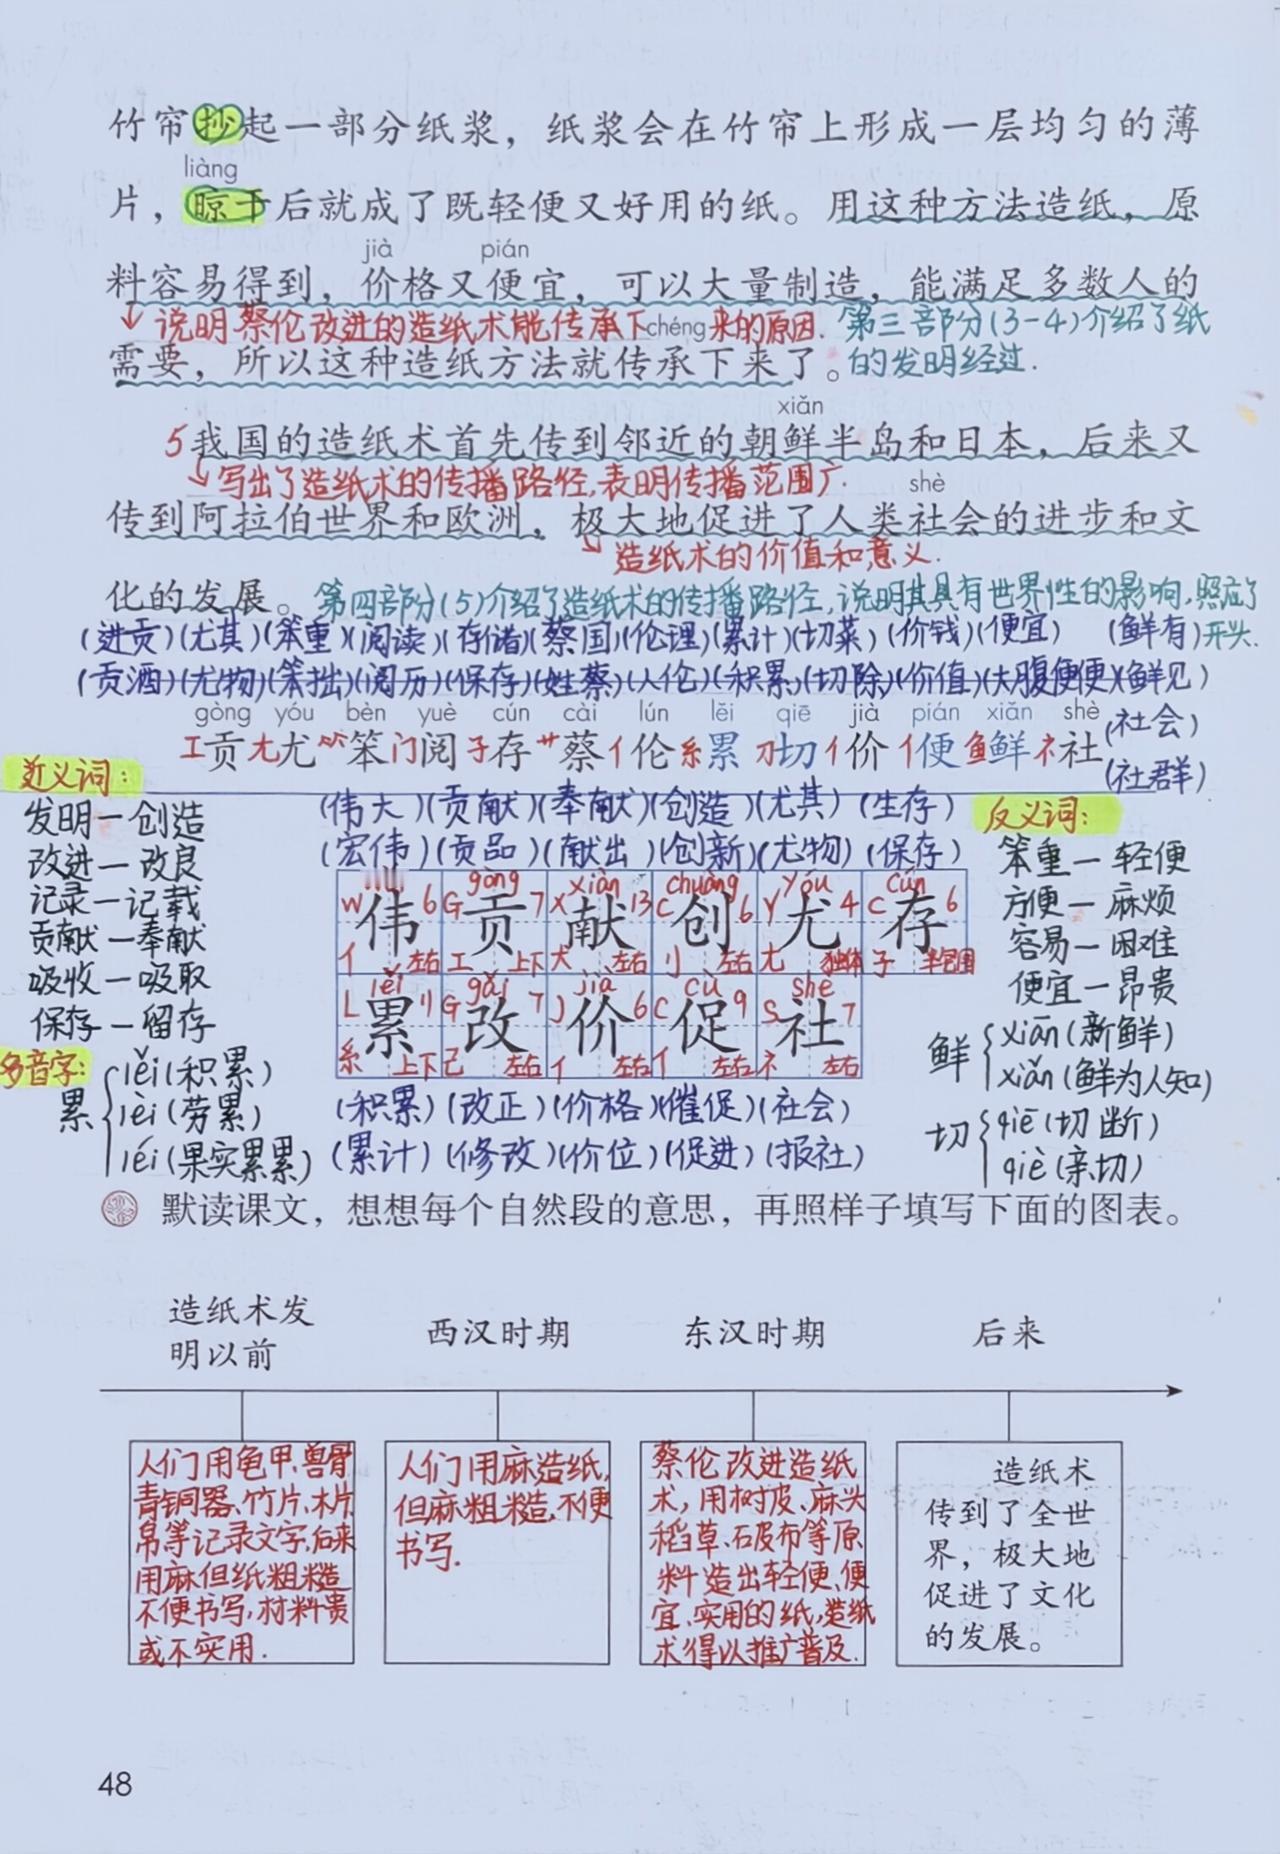 竹帘抄起一部分纸浆，纸浆会在竹帘上形成一层均匀的薄
liàng
片，晾干后就成了既轻便又好用的纸。用这种方法造纸，原
jià pián
料容易得到，价格又便宜，可以大量制造，能满足多数人的
说明蔡伦改进的造纸术能传承下来的原因.
chéng
第三部分(3-4)介绍了纸
的发明经过.
需要，所以这种造纸方法就传承下来了。
xiǎn
5我国的造纸术首先传到邻近的朝鲜半岛和日本，后来又
写出了造纸术的传播路径,表明传播范围广.
shè
传到阿拉伯世界和欧洲，极大地促进了人类社会的进步和文
造纸术的价值和意义.
化的发展。
第四部分(5)介绍了造纸术的传播路径,说明其具有世界性的影响,照应了
开头.
(进贡)(尤其)(笨重)(阅读)(存储)(蔡国)(伦理)(累计)(切菜)(价钱)(便宜) (鲜有)
(贡酒)(尤物)(笨拙)(阅历)(保存)(姓蔡)(人伦)(积累)(切除)(价值)(大腹便便)(鲜见)
gòng yóu bèn yuè cún cài lún lěi qiē jià pián xiǎn shè
工贡 尢尤 ⺮笨 门阅 子存 艹蔡 亻伦 糸累 刀切 亻价 亻便 鱼鲜 礻社
(社会)
(社群)
近义词:
发明—创造
改进—改良
记录—记载
贡献—奉献
吸收—吸取
保存—留存
多音字:
累
lěi(积累)
lèi(劳累)
léi(果实累累)
(伟大)(贡献)(奉献)(创造)(尤其)(生存)
(宏伟)(贡品)(献出)(创新)(尤物)(保存)
gòng xiàn chuàng yóu cún
W 伟 6 G 贡 7 X 献 13 C 创 6 Y 尤 4 C 存 6
亻 左右 工 上下 犬 左右 刂 左右 尢 独体 子 半包围
lěi gǎi jià cù shè
L 累 11 G 改 7 J 价 6 C 促 9 S 社 7
糸 上下 己 左右 亻 左右 亻 左右 礻 左右
(积累)(改正)(价格)(催促)(社会)
(累计)(修改)(价位)(促进)(报社)
反义词:
笨重—轻便
方便—麻烦
容易—困难
便宜—昂贵
鲜
xiān(新鲜)
xiǎn(鲜为人知)
切
qiē(切断)
qiè(亲切)
默读课文，想想每个自然段的意思，再照样子填写下面的图表。
造纸术发
明以前
西汉时期
东汉时期
后来
人们用龟甲、兽骨
青铜器、竹片、木片
帛等记录文字,后来
用麻但纸粗糙
不便书写,材料贵
或不实用.
人们用麻造纸,
但麻粗糙,不便
书写.
蔡伦改进造纸
术,用树皮、麻头
稻草、破布等原
料造出轻便、便
宜、实用的纸,造纸
术得以推广普及.
造纸术
传到了全世
界，极大地
促进了文化
的发展。
48